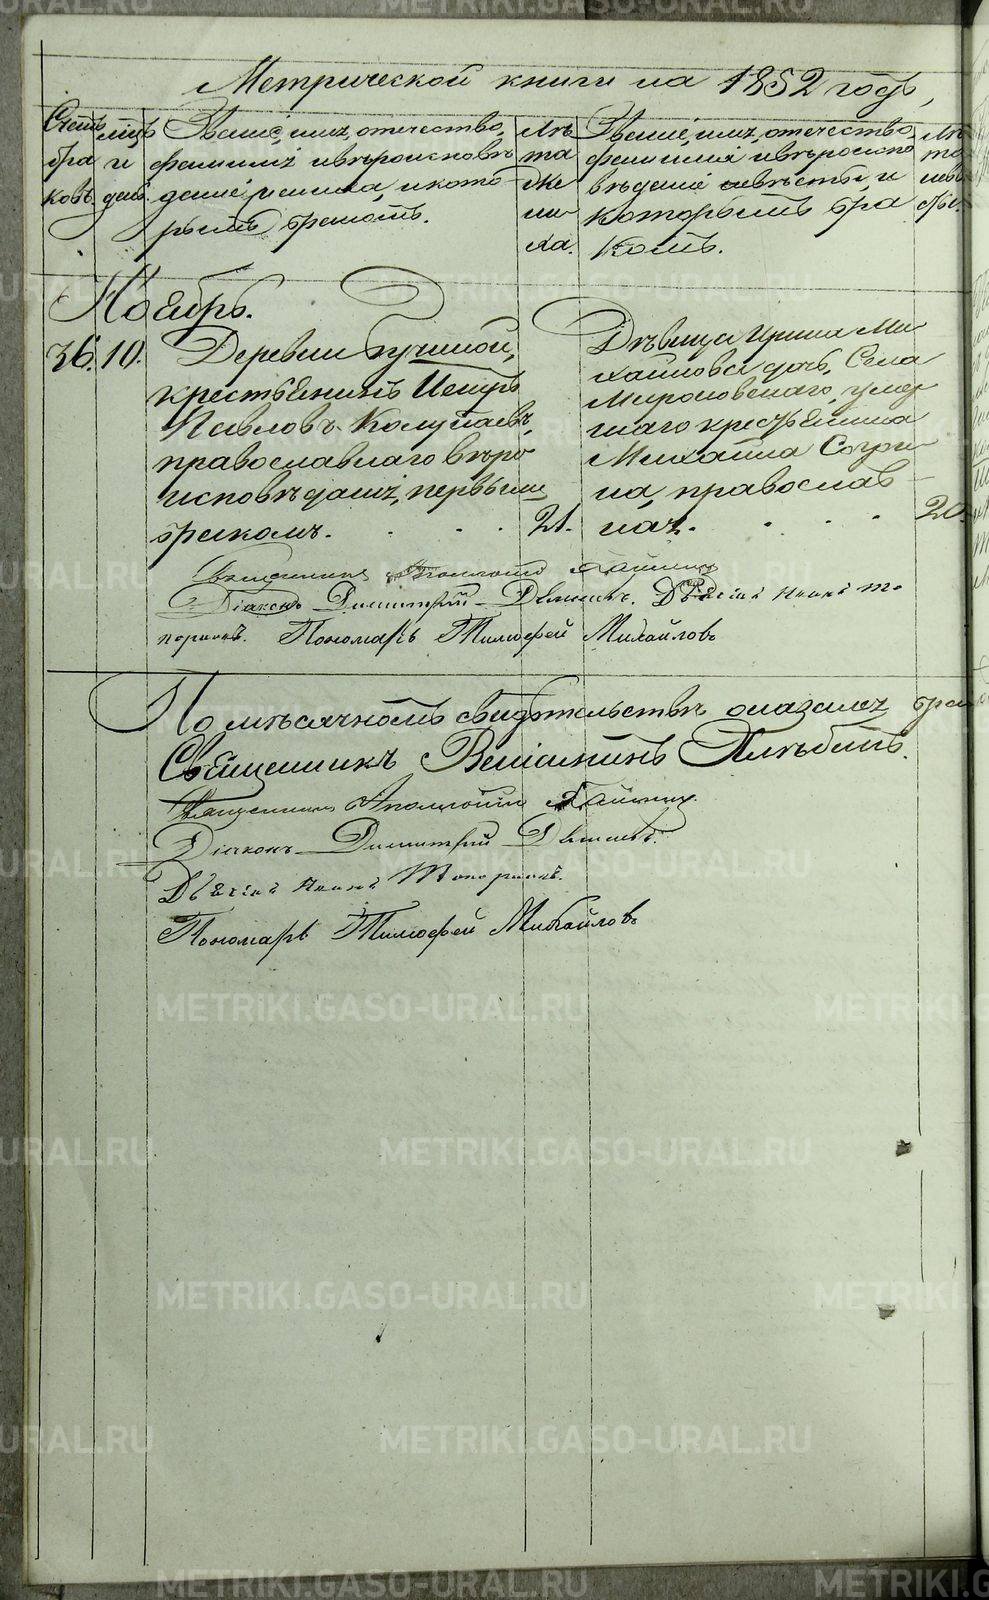 Метрической книги на 1852 годъ,
Счетъ браковъ.
мцъ и день.
Званіе, имя, отечество,
фамилія и вѣроисповѣ
даніе жениха, и кото-
рымъ бракомъ.
Лѣта жениха.
Званіе, имя, отечество
фамилія и вѣроиспо
вѣданіе невѣсты, и
которымъ бра
комъ.
Лѣта невѣсты.
Ноябрь.
36. 10.
Деревни
крестьянинъ Петръ
Павловъ Колупаевъ,
православнаго вѣро
исповѣданія, первымъ
бракомъ. . . . 21.
Дѣвица Ирина Ми
хайлова дочь, Села
Мироновскаго, умер
шаго крестьянина
Михаила
на, православ-
ная. . . . 20.
Священникъ Аполлоній
Діаконъ Димитрій Дьячій
Пономарь Тимофей Михайловъ
По мѣсячномъ свидѣтельствѣ оказался
Священникъ Веніаминъ
Священникъ Аполлоній
Діаконъ Димитрій
Дьячій Топорковъ.
Пономарь Тимофей Михайловъ
METRIKI.GASO-URAL.RU